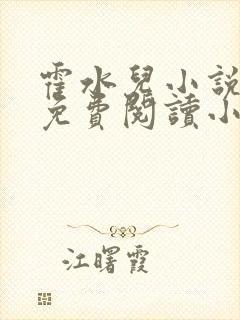 霍水兒小說
免費閱讀小
江曙霞